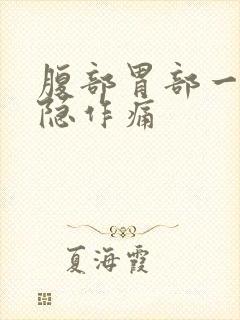 腹部胃部一
隐作痛
夏海霞